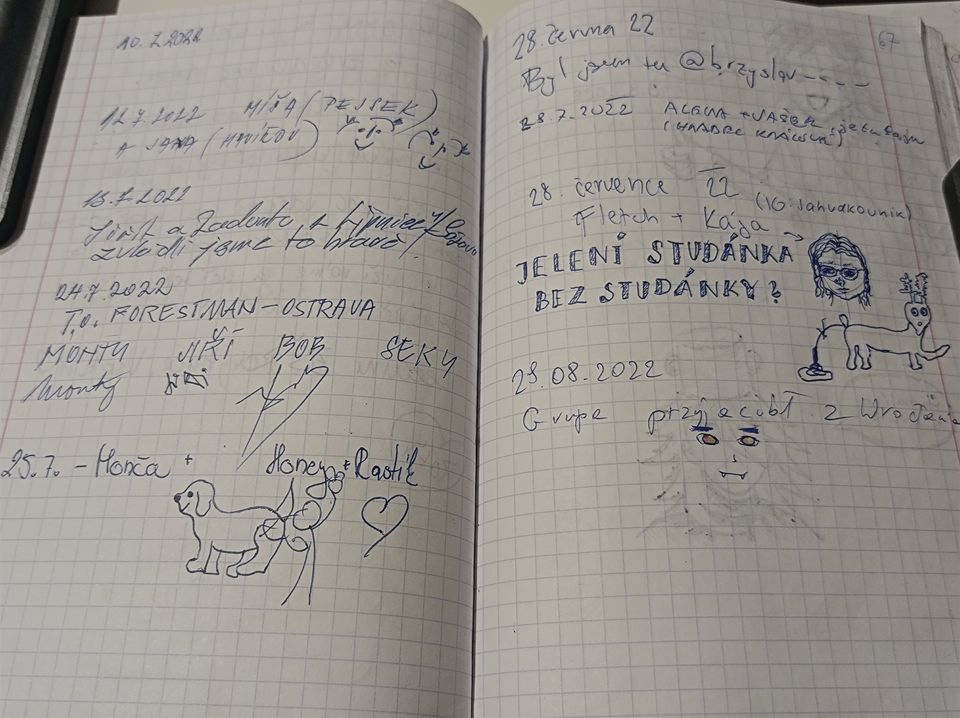 10.7.2022
12.7.2022 MÍŠA (PEJSEK)
A JANA (HAVÍŘOV)
13.7.2022
a z
zvládli jsme to hravě!
24.7.2022
T.O. FORESTMAN - OSTRAVA
MONTY JIŘÍ BOB SEKY
Monty
25.7. - Honča + Honey + Rastik
28. června 22
67
Byl jsem tu @brzyslav----
28.7.2022 ALENA + VAŠEK
(HRADEC KRÁLOVÉ)
28. července 22
Fletch + Kája
JELENÍ STUDÁNKA
BEZ STUDÁNKY?
29.08.2022
Grupa przyjaciół z